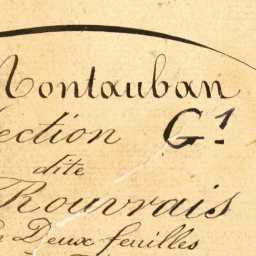 Montauban
Section G.1
dite
Rouvrais
Deux feuilles